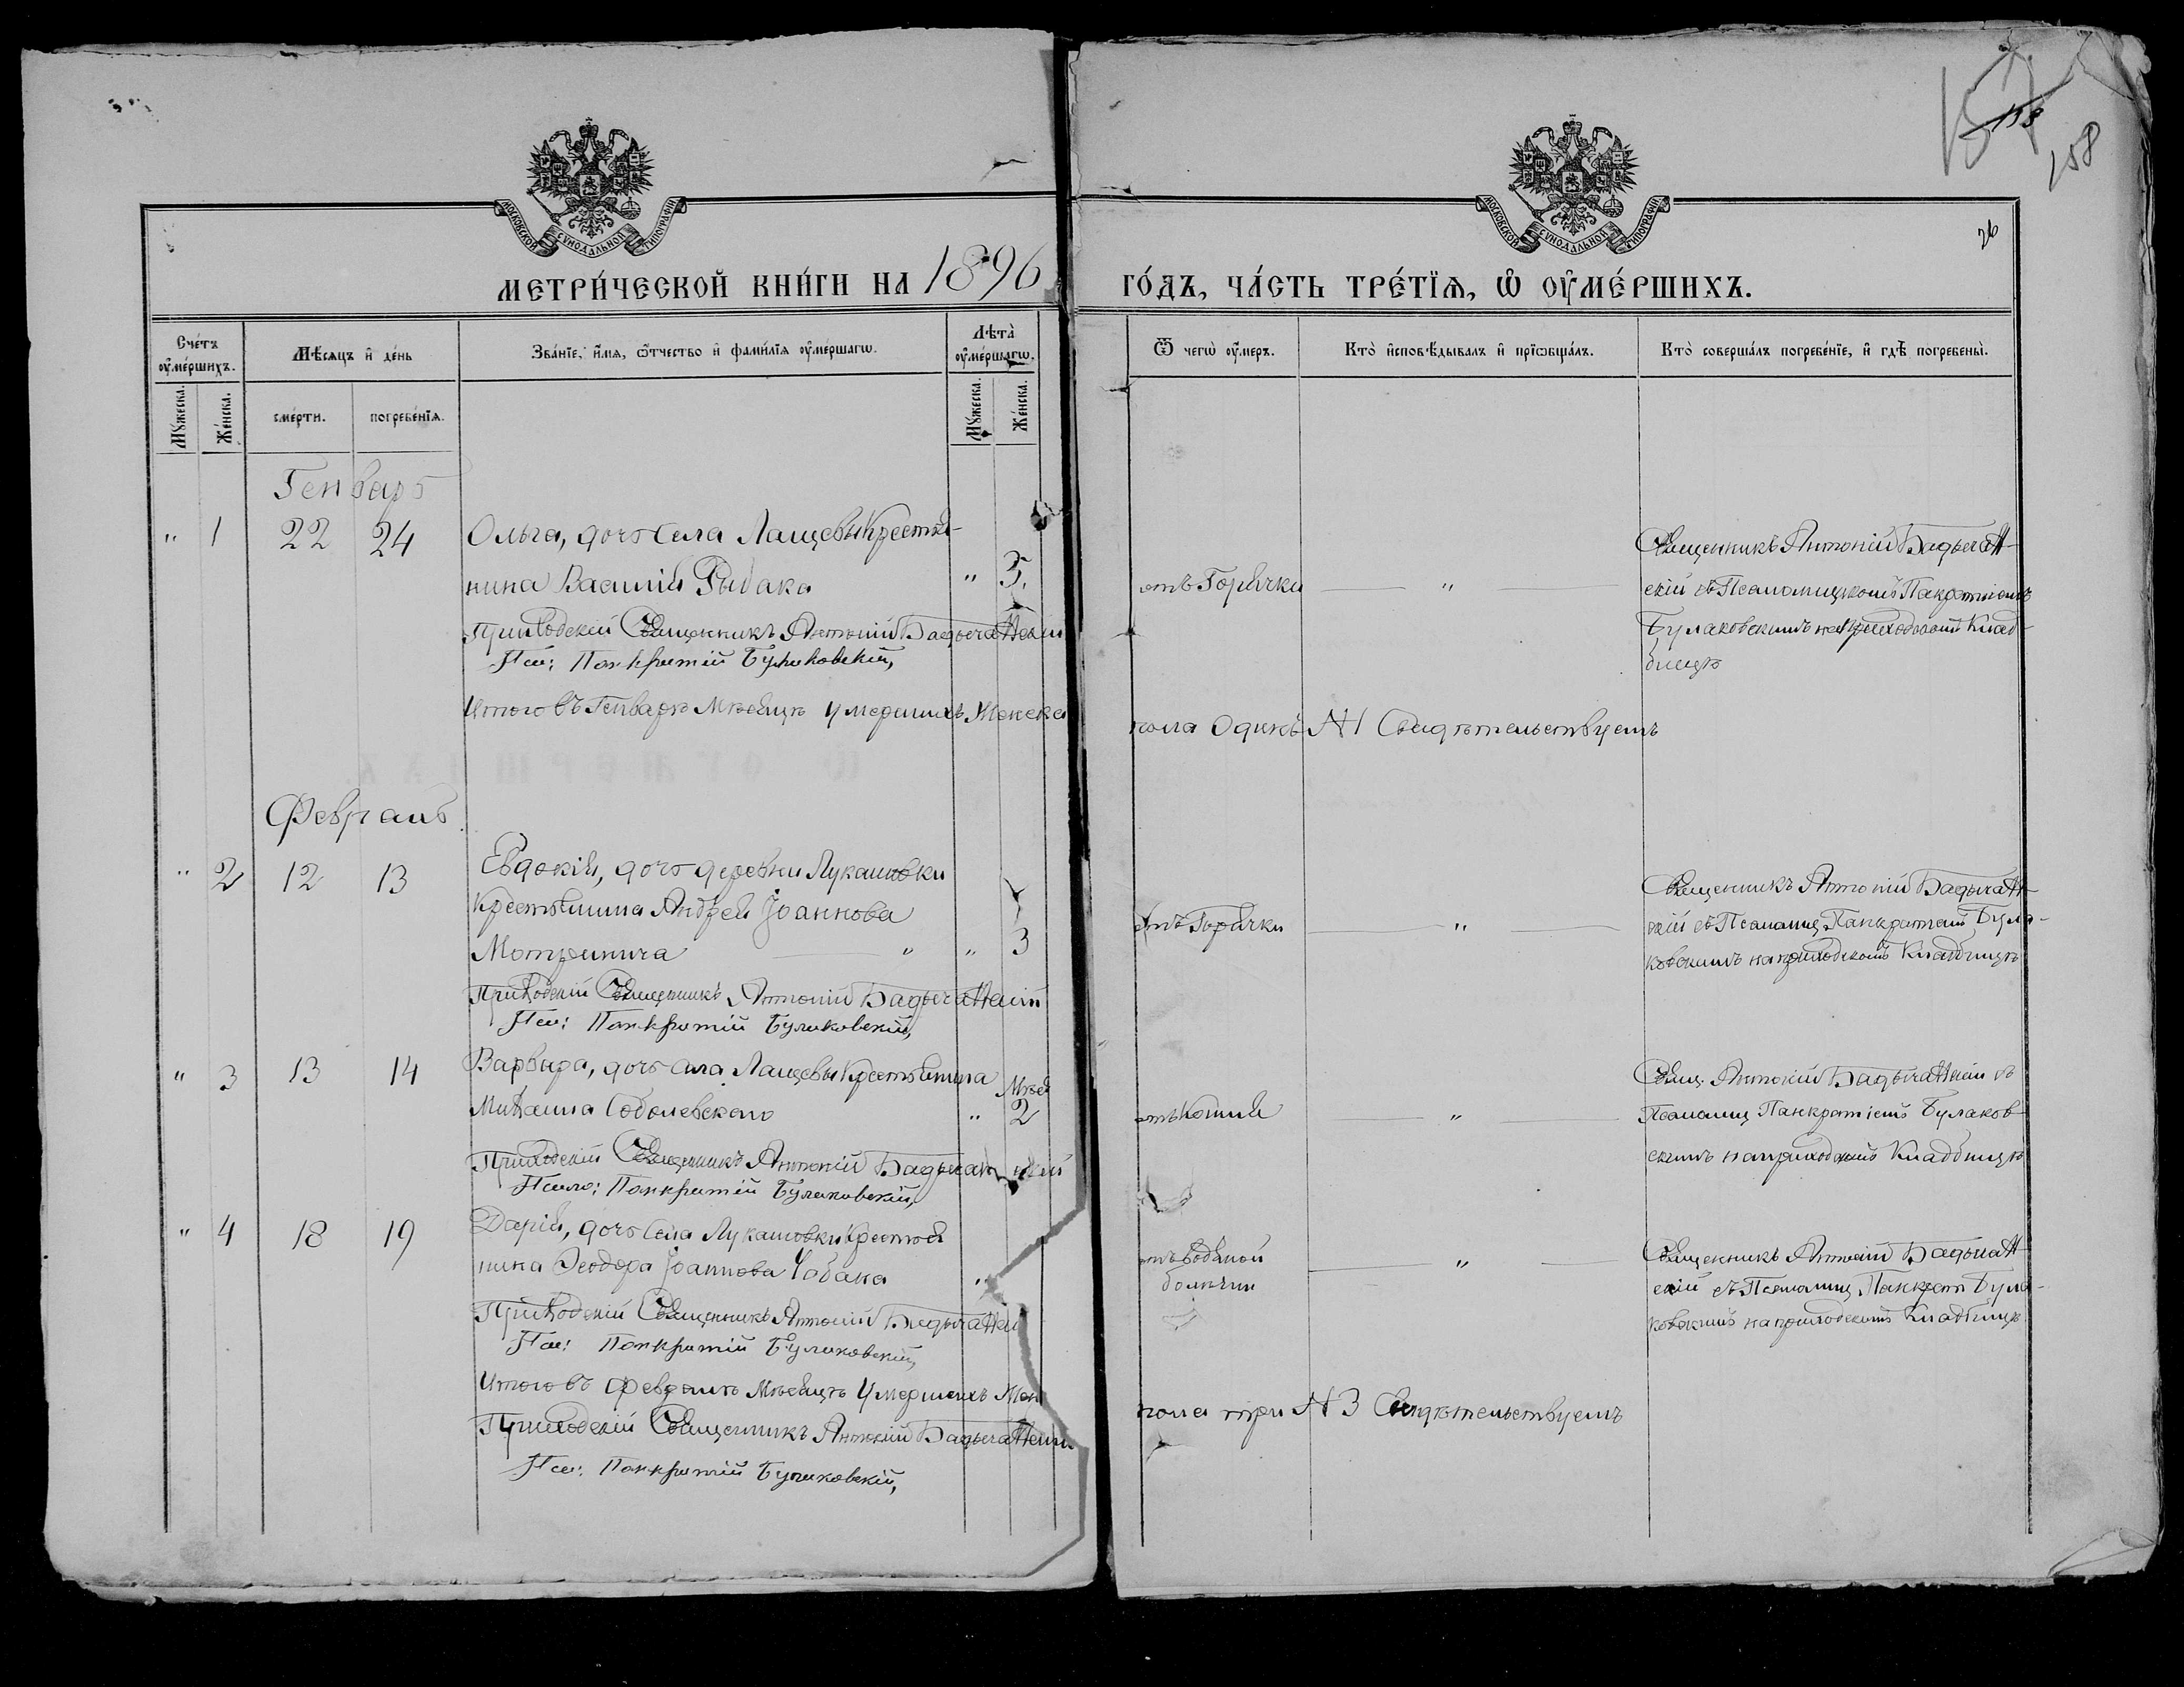 157
158
158
26
МОСКОВСКОЙ СѴНОДАЛЬНОЙ ТИПОГРАФІИ
МОСКОВСКОЙ СѴНОДАЛЬНОЙ ТИПОГРАФІИ
МЕТРИ́ЧЕСКОЙ КНИ́ГИ НА 1896
ГО́ДЪ, ЧА́СТЬ ТРЕ́ТЇѦ, Ѡ҆ ОУ҆МЕ́РШИХЪ.
Сче́тъ оу҆ме́ршихъ.
Мꙋ́жеска.
Же́нска.
Мѣ́сяцъ и҆ де́нь
сме́рти.
погребе́нїѧ.
Зва́нїе, и҆́мѧ, ѻ҆́тчество и҆ фами́лїѧ оу҆ме́ршагѡ.
Лѣта̀ оу҆ме́ршагѡ.
Мꙋ́жеска.
Же́нска.
Ѿ чегѡ̀ оу҆́меръ.
Кто̀ и҆сповѣ́дывалъ и҆ прїѡбща́лъ.
Кто̀ соверша́лъ погребе́нїе, и҆ гдѣ̀ погребены̀.
Генварь
" 1 22 24 Ольга, дочь села Лащевы Крестья-
нина Василія Рыбака " 5.
Приходскій Священникъ Антоній
Пса: Панкратій Булаковскій,
отъ Горячки "
Священникъ Антоній
скій съ Псаломщикомъ Пакратіемъ
Булаковскимъ на приходскомъ Клад-
бищѣ
Итого въ Генварѣ Мѣсяцѣ умершихъ Женска
пола Одинъ N 1 Свидѣтельствуемъ
Февраль
" 2 12 13 Евдокія, дочь деревни Лукашовки
Крестьянина Андрея Іоаннова
" " 3
Приходскій Священникъ Антоній
Пса: Панкратій Булаковскій,
отъ Горячки "
Священникъ Антоній
скій съ Псаломщ. Панкратіемъ Була-
ковскимъ на приходскомъ Кладбищѣ
" 3 13 14 Варвара, дочь села Лащевы Крестьянина
Михаила Соболевскаго " Мѣся 2
Приходскій Священникъ Антоній
Псало: Панкратій Булаковскій,
"
Свящ. Антоній съ
Псаломщ Панкратіемъ Булаков
скимъ на приходскомъ Кладбищѣ
" 4 18 19 Дарія, дочь села Лукашовки Крестья
нина Ѳеодора Іоаннова Чабана "
Приходскій Священникъ Антоній
Пса: Панкратій Булаковскій,
отъ водяной "
болѣзни
Священникъ Антоній
скій съ Псаломщ. Панкрат Була-
ковскимъ на приходскомъ Кладбищѣ
Итого въ Февралѣ Мѣсяцѣ Умершихъ Жен
пола три N 3 Свидѣтельствуемъ
Приходскій Священникъ Антоній
Пса: Панкратій Булаковскій,